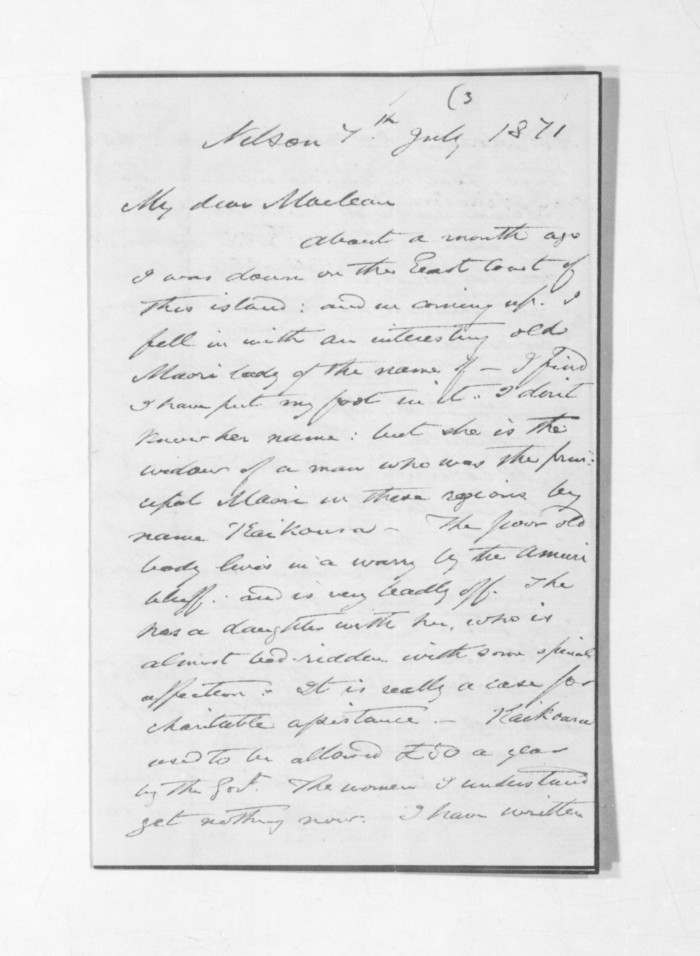 (3
Nelson 7th July 1871
My dear Maclean
about a month ago
I was down on the East Coast of
this island: and in coming up. I
fell in with an interesting old
Maori lady of the name of – I find
I have put my foot in it. I don't
know her name: but she is the
widow of a man who was the prin:
cipal Maori in these regions by
name Kaikoura – The poor old
body lives in a warry by the Amuri
bluff: and is very badly off. She
has a daughter with her, who is
almost bed-ridden with some spinal
affection: It is really a case for
charitable assistance – Kaikoura
used to be allowed £50 a year
by the Govt. The women I understand
get nothing now. I have written